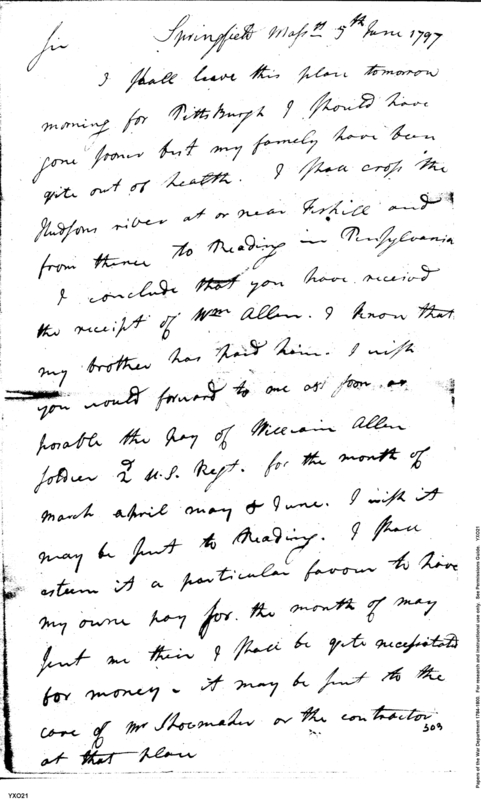 Springfield Massts 5th June 1797
Sir
I shall leave this place tomorrow
morning for Pittsburgh I should have
gone sooner but my famely have been
qite out of health. I shall cross the
Hudsons river at or near Fishkill and
from thence to Reading in Pensylvania
I conclude that you have receivd
the receipt of Wm Allen. I know that
my brother has paid him. I wish
you would forward to me as soon as
posable the pay of William Allen
soldier 2d U.S. Regt. for the month of
March april may & June. I wish it
may be sent to Reading. I shall
esteem it a particular favour to have
my owne pay for the month of may
sent me their I shall be qite necessitated
for money - it may be sent to the
care of Mr Shoemaker or the contractor
at that place
309
YXO21
Papers of the War Department 1784-1800. For research and instructional use only. See Permissions Guide. YXO21